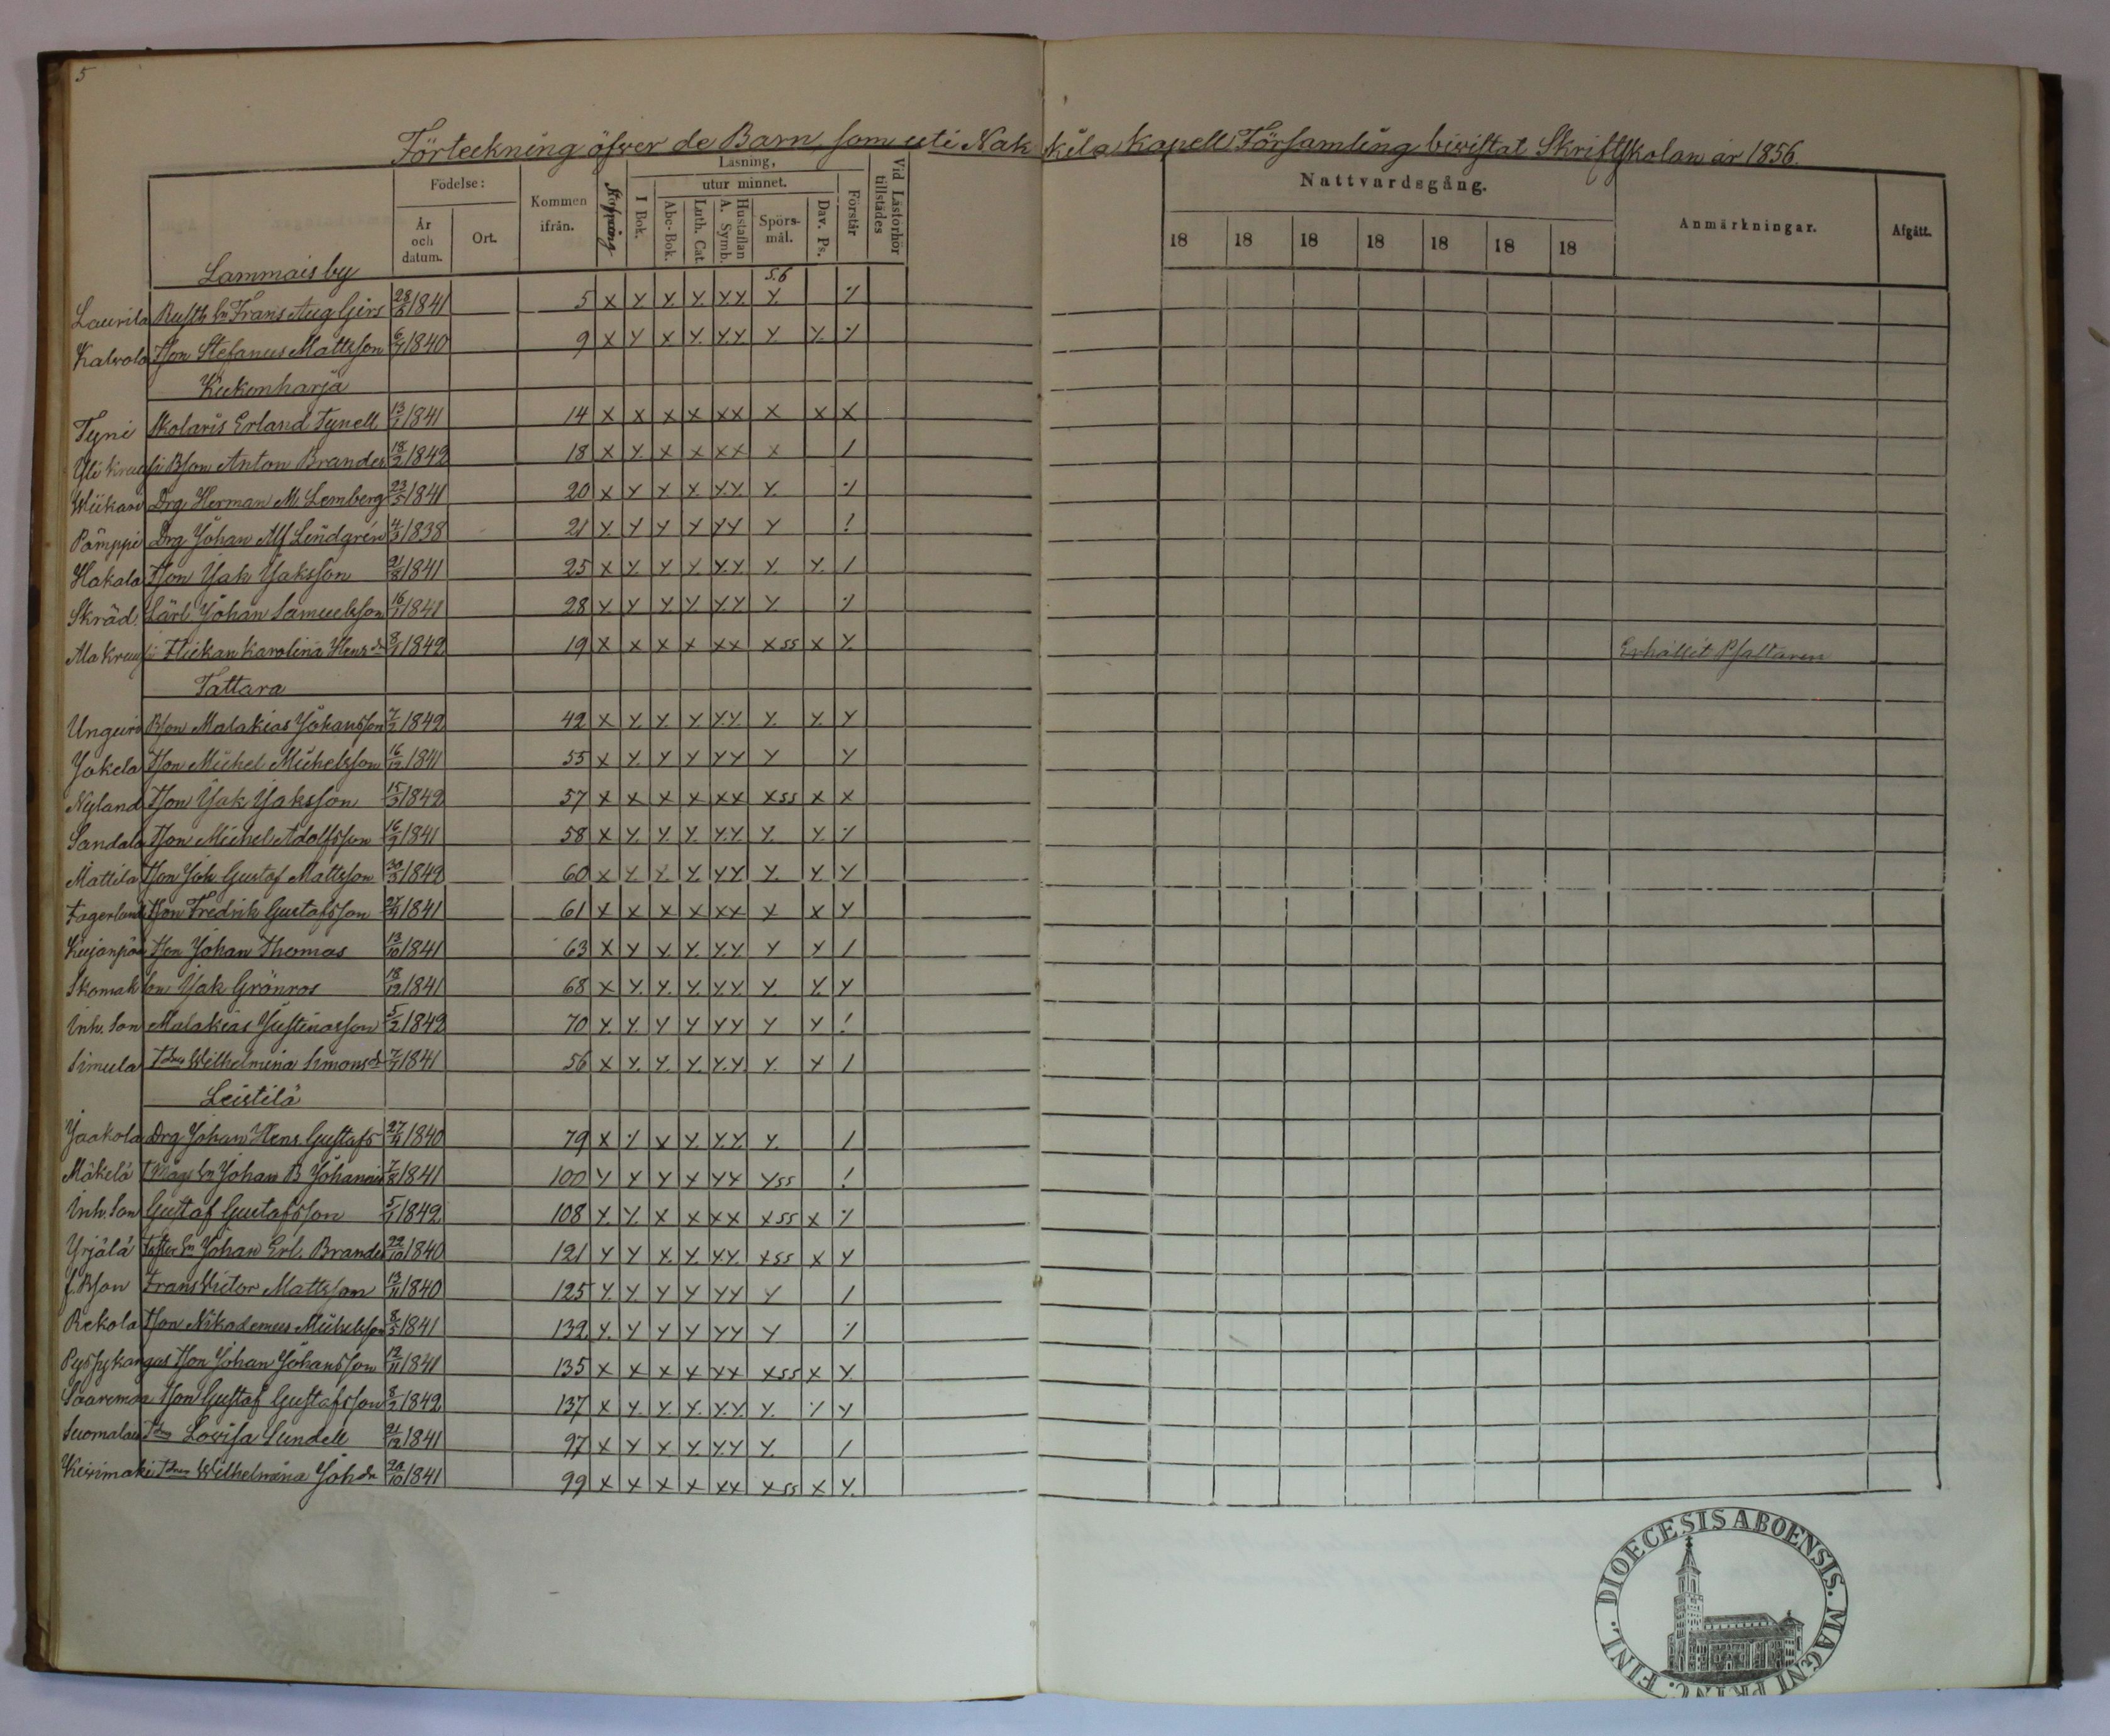 5
Förteckning öfver de Barn, som uti Nakkila Kapell Församling biwistat Skriftskolan år 1856.
Födelse: Kommen ifrån. Stafning Läsning, utur minnet. Förstår Vid Läsförhör tillstädes Nattvardsgång. Anmärkningar. Afgått.
År och datum. Ort. I Bok. Abc-Bok. Luth. Cat. Hustaflan A. Symb. Spörsmål. Dav. Ps. 18 18 18 18 18 18 18
Lammais by 5.6
Laurila Rusth Sn Frans Aug Girs 1841 5 X Y Y Y YY Y ⁒
Kalvola Tson Stefanus Mattsson 1840 9 X Y X Y YY Y Y ⁒
Kukonharja
Tyni Skolaris Erland Tynell 13/1 1841 14 X X X X XX X X X
Yli Krausi Bson Anton Brander 18/2 1842 18 X Y X X XX X /
Wiikari Drg Herman M. Lemberg 23/5 1841 20 X Y Y X YY Y ⁒
Pämppi Drg Johan Alf Lindgrén 4/3 1838 21 Y Y Y Y YY Y !
Hakala Tson Jak Jaksson 21/8 1841 25 X Y Y Y YY Y Y /
Skräd. Lärl. Johan Samuelsson 1841 28 Y Y Y Y YY Y ⁒
Ala Krausi Flickan Karolina Hens dr 8/1 1842 19 X X X X XX X ss X Y Erhållit Psaltaren
Tattara
Unguri Bson Malakias Johansson 1842 42 X Y Y Y YY Y Y Y
Jokela Tson Michel Michelsson 16/12 1841 55 X Y Y Y YY Y Y
Nyland Tson Jak Jaksson 1842 57 X X X X XX X ss X X
Sandala Tson Michel Adolfsson 16/9 1841 58 X Y Y Y YY Y Y ⁒
Mattila Tson Joh Gustaf Mattsson 1842 60 X Y Y Y YY Y Y Y
Fagerlund Tson Fredrik Gustafsson 1841 61 X X X X XX X X Y
Kujanpää Tson Johan Thomas 13/10 1841 63 X Y Y Y YY Y Y /
Skomak son Jak Grönros 18/12 1841 68 X Y Y Y YY Y Y Y
Inh. Son Malakias Justinasson 5/2 1842 70 Y Y Y Y YY Y Y !
Simula Tdr Wilhelmina Simonsd 1841 56 X Y Y Y YY Y Y /
Leistilä
Jaakola Drg Johan Hens Gustafs 1840 79 X ⁒ X Y YY Y /
Mäkelä Johan B Johan 7/8 1841 100 Y Y Y X YY Y ss !
Inh. Son Gustaf Gustafsson 5/1 1842 108 Y Y X X XX X ss X ⁒
Yrjälä Johan Erl. Brander 22/10 1840 121 Y Y X Y YY X ss X Y
f. Bson Frans Victor Mattsson 13/11 1840 125 Y Y Y Y YY Y /
Rekola Tson Nikodemus Michelsson 8/5 1841 132 Y Y Y Y YY Y ⁒
Pyssykangas Tson Johan Johansson 12/11 1841 135 X X X X XX X ss X Y
Saarenmaa Tson Gustaf Gustafsson 8/2 1842 137 X Y Y Y YY Y ⁒ Y
Suomalais Tdr Lovisa Sundell 21/12 1841 97 X Y X Y YY Y /
Kivimäki Tdr Wilhelmina Joh dr 20/10 1841 99 X X X X XX X ss X Y
DIOECESIS ABOENSIS. MAGNI PRINC. FINL.